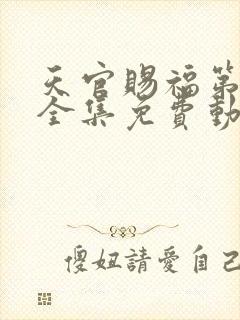 天官賜福第
全集免費動
傻妞請愛自己